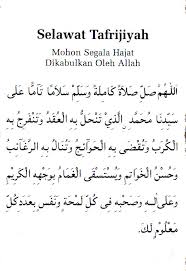 Selawat Tafrijiyah
Mohon Segala Hajat
Dikabulkan Oleh Allah
اَللّٰهُمَّ صَلِّ صَلَاةً كَامِلَةً وَسَلِّمْ سَلَامًا تَامًّا عَلَى
سَيِّدِنَا مُحَمَّدِ الَّذِي تَنْحَلُّ بِهِ الْعُقَدُ وَتَنْفَرِجُ بِهِ
الْكُرَبُ وَتُقْضَى بِهِ الْحَوَآئِجُ وَتُنَالُ بِهِ الرَّغَآئِبُ
وَحُسْنُ الْخَوَاتِمِ وَيُسْتَسْقَى الْغَمَامُ بِوَجْهِهِ الْكَرِيْمِ
وَعَلَى آلِهِ وَصَحْبِهِ فِي كُلِّ لَمْحَةٍ وَنَفَسٍ بِعَدَدِ كُلِّ
مَعْلُوْمٍ لَكَ.